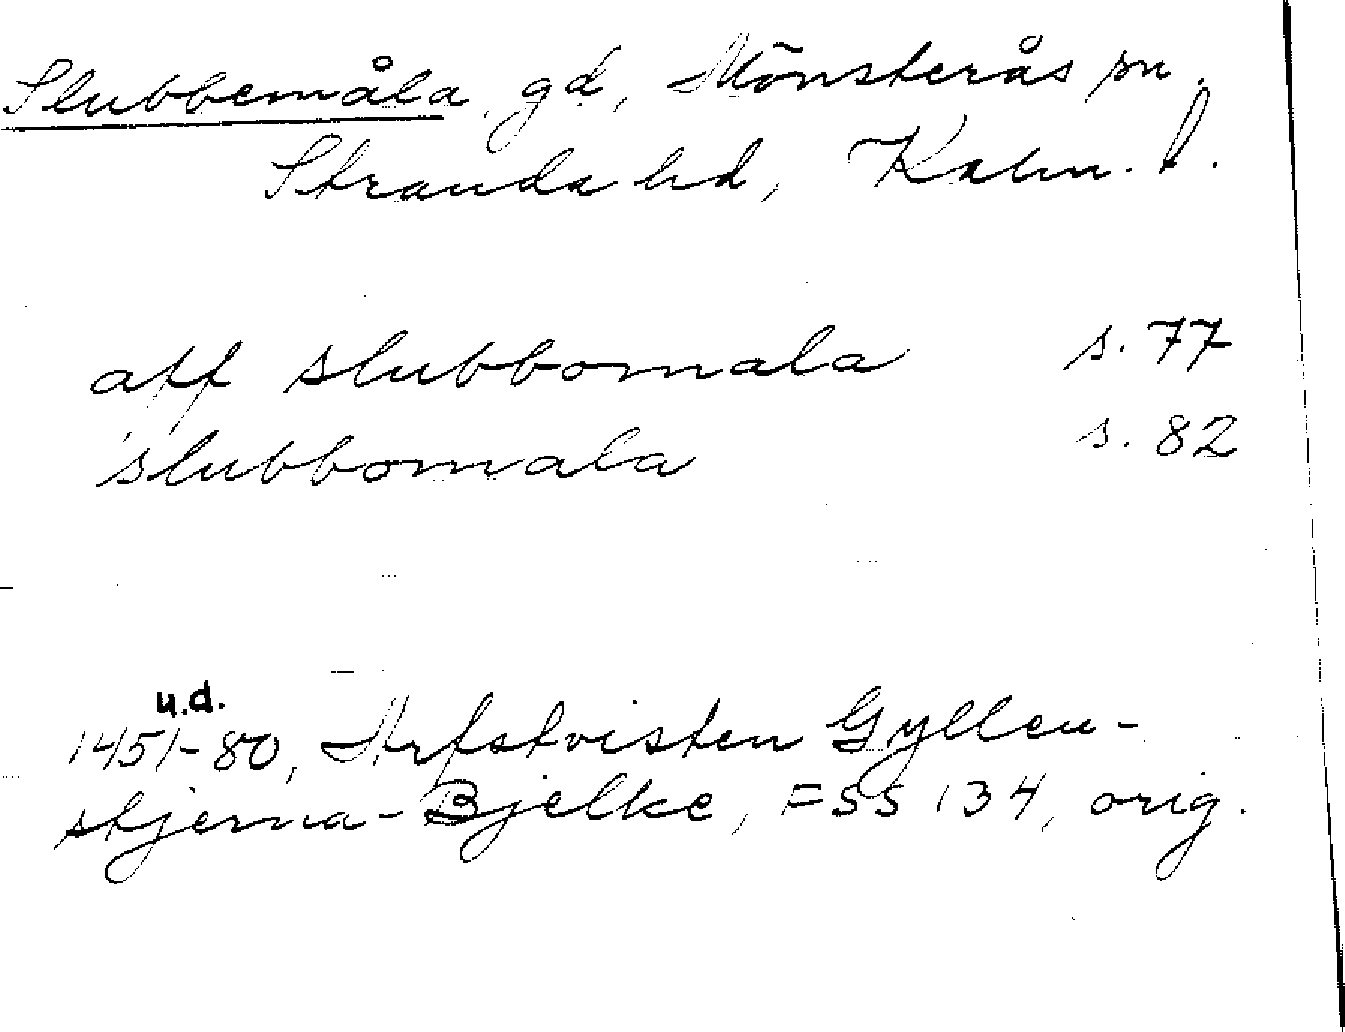 Slubbemåla, gd, Mönsterås sn.
Stranda hd, Kalm. l.
aff slubbomala s. 77
slubbomala s. 82
u.d.
1451-80, Arfstvisten Gyllen-
stjerna-Bjelke, FSS 134, orig.